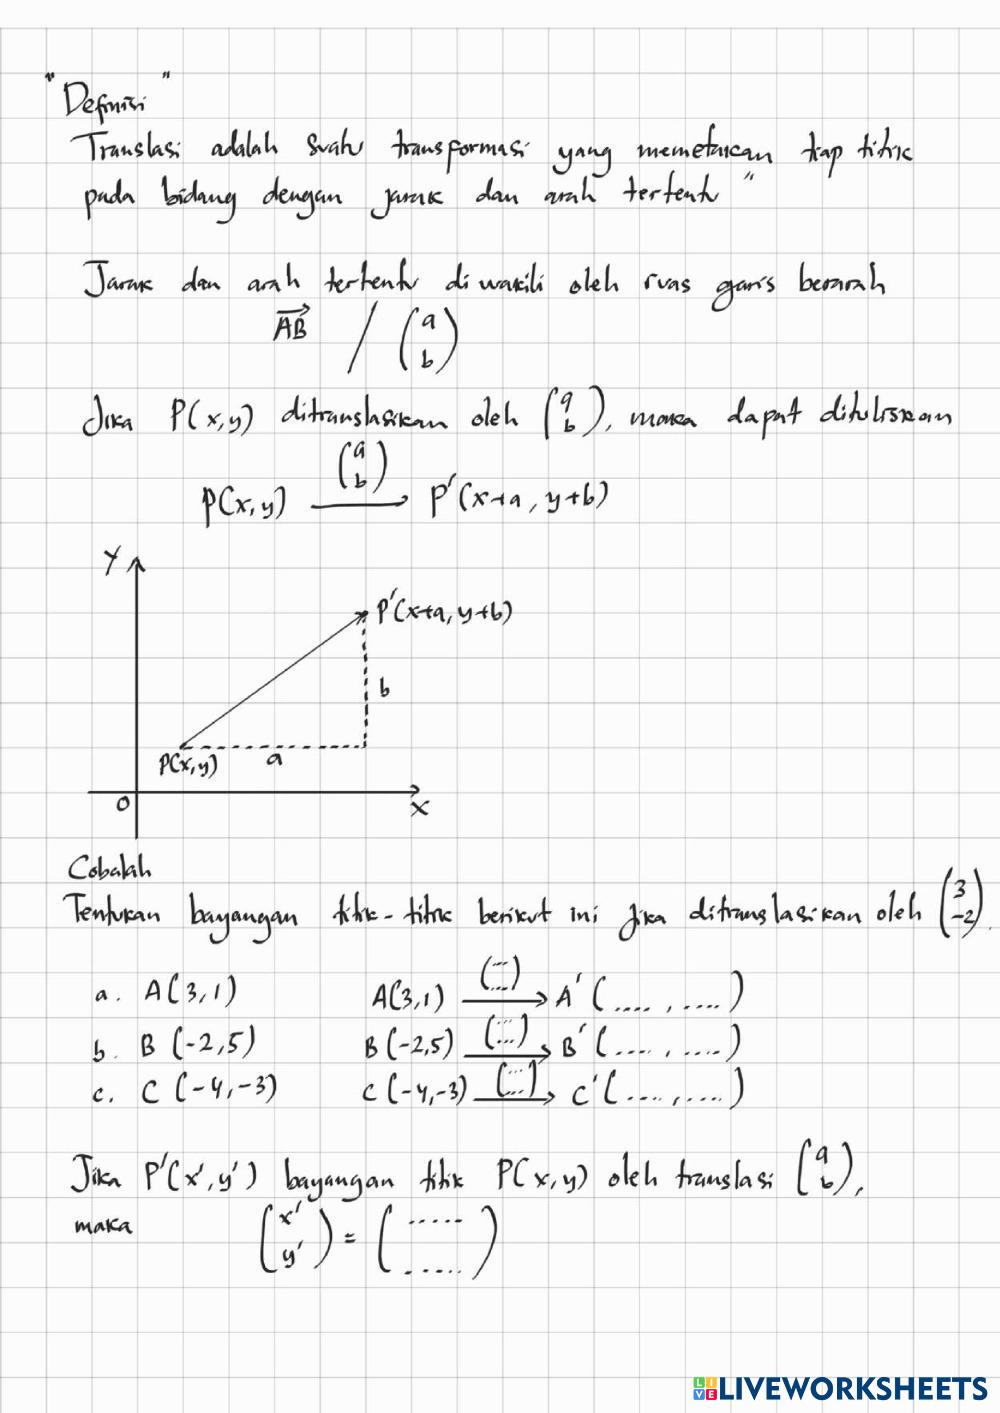 "Definisi"
Translasi adalah suatu transformasi yang memetakan tiap titik
pada bidang dengan jarak dan arah tertentu"
Jarak dan arah tertentu diwakili oleh ruas garis berarah
AB / (a b)
Jika P(x,y) ditranslasikan oleh (a b), maka dapat dituliskan
(a b)
P(x,y) → P'(x+a, y+b)
Y
P'(x+a, y+b)
b
P(x,y) a
O X
Cobalah
Tentukan bayangan titik-titik berikut ini jika ditranslasikan oleh (3 -2).
a. A(3,1) A(3,1) (... ...) → A' (...., ....)
b. B (-2,5) B(-2,5) (... ...) → B' (...., ....)
c. C (-4,-3) C(-4,-3) (... ...) → C' (...., ....)
Jika P'(x',y') bayangan titik P(x,y) oleh translasi (a b),
maka (x' y') = (..... .....)
LIVE LIVEWORKSHEETS